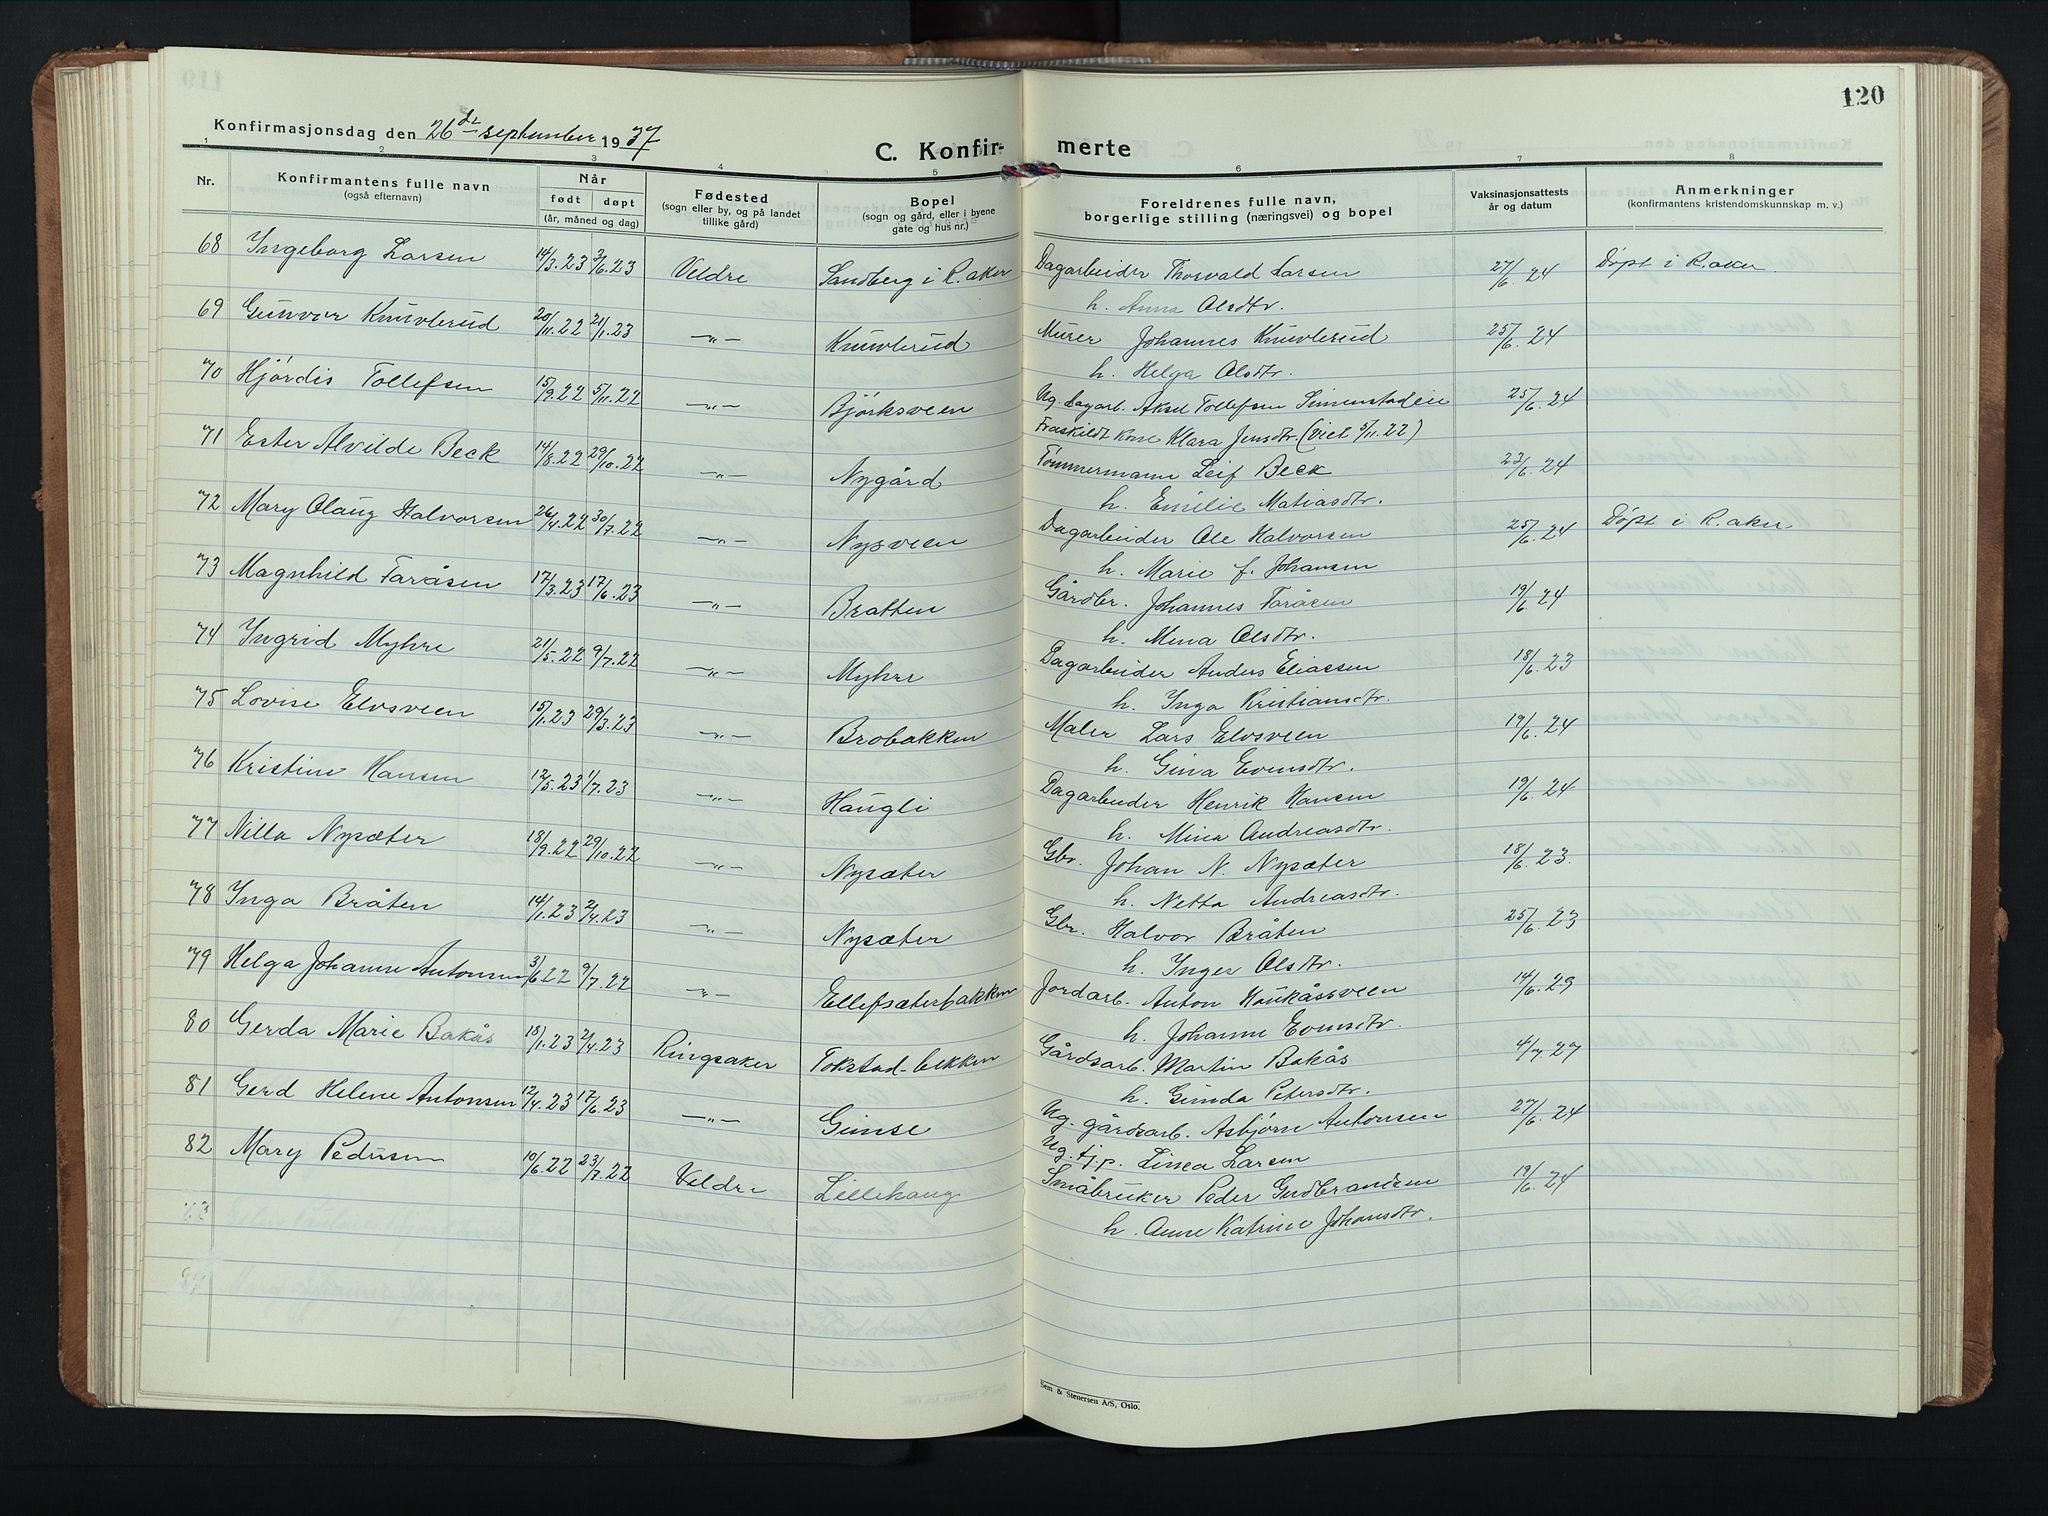 120
Konfirmasjonsdag den 26de september 1937
C. Konfir- merte
1 2 3 4 5 6 7 8
Nr. Konfirmantens fulle navn (også efternavn) Når født døpt (år, måned og dag) Fødested (sogn eller by, og på landet tillike gård) Bopel (sogn og gård, eller i byene gate og hus nr.) Foreldrenes fulle navn, borgerlige stilling (næringsvei) og bopel Vaksinasjonsattests år og datum Anmerkninger (konfirmantens kristendomskunnskap m. v.)
68 Ingeborg Larsen 14/3.23 3/6.23 Veldre Sandberg i R.aker Dagarbeider Thorvald Larsen 27/6.24 Døpt i R.aker
h. Anna Olsdtr.
69 Gunvor Knuvlerud 20/11.22 21/1.23 -„- Knuvlerud Murer Johannes Knuvlerud 25/6.24
h. Helga Olsdtr.
70 Hjördis Tollefsen 15/9.22 5/11.22 -„- Bjørksveen Ug. dagarb. Aksel Tollefsen Simenstadeie 25/6.24
Fraskildt kone Klara Jensdtr. (viet 5/11.22)
71 Ester Alvilde Beck 14/8.22 29/10.22 -„- Nygård Tømmermann Leif Beck 23/6.24
h. Emilie Matiasdtr.
72 Mary Olaug Halvorsen 26/4.22 30/7.22 -„- Nysveen Dagarbeider Ole Halvorsen 25/6.24 Döpt i R.aker
h. Marie f. Johansen
73 Magnhild Taråsen 17/3.23 17/6.23 -„- Bratten Gårdbr. Johannes Taråsen 19/6.24
h. Mina Olsdtr.
74 Ingrid Myhre 21/5.22 9/7.22 -„- Myhre Dagarbeider Anders Eliassen 18/6.23
h. Inga Kristiansdtr.
75 Lovise Elvsveen 15/1.23 29/3.23 -„- Brobakken Maler Lars Elvsveen 19/6.24
h. Gina Evensdtr.
76 Kristine Hansen 12/5.23 1/7.23 -„- Haugli Dagarbeider Henrik Hansen 19/6.24
h. Mina Andreasdtr.
77 Nilla Nysæter 18/9.22 29/10.22 -„- Nysæter Gbr. Johan N. Nysæter 18/6.23.
h. Netta Andreasdtr.
78 Inga Bråten 14/1.23 2/4.23 -„- Nysæter Gbr. Halvor Bråten 25/6.23
h. Inger Olsdtr.
79 Helga Johanne Antonsen 3/6.22 9/7.22 -„- Ellefsæterbakken Jordarb. Anton Haukåssveen 14/6.29
h. Johanne Evensdtr.
80 Gerda Marie Bakås 18/1.23 2/4.23 Ringsaker Tokstad-bekken Gårdsarb. Martin Bakås 4/7.27
h. Gunda Petersdtr.
81 Gerd Helene Antonsen 12/4.23 17/6.23 -„- Gimse Ug. gårdsarb. Asbjørn Antonsen 27/6.24
Ug. tjp. Linea Larsen
82 Mary Pedersen 10/6.22 23/7.22 Veldre Lillehaug Småbruker Peder Gudbrandsen 19/6.24
h. Anne Katrine Johansdtr.
Sem & Stenersen A/S, Oslo.